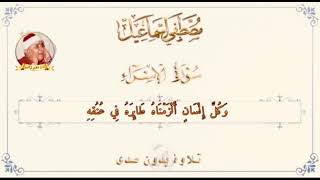 مصطفى إسماعيل
سورة الإسراء
وَكُلَّ إِنْسَانٍ أَلْزَمْنَاهُ طَائِرَهُ فِي عُنُقِهِ
تلاوة بدون صدى